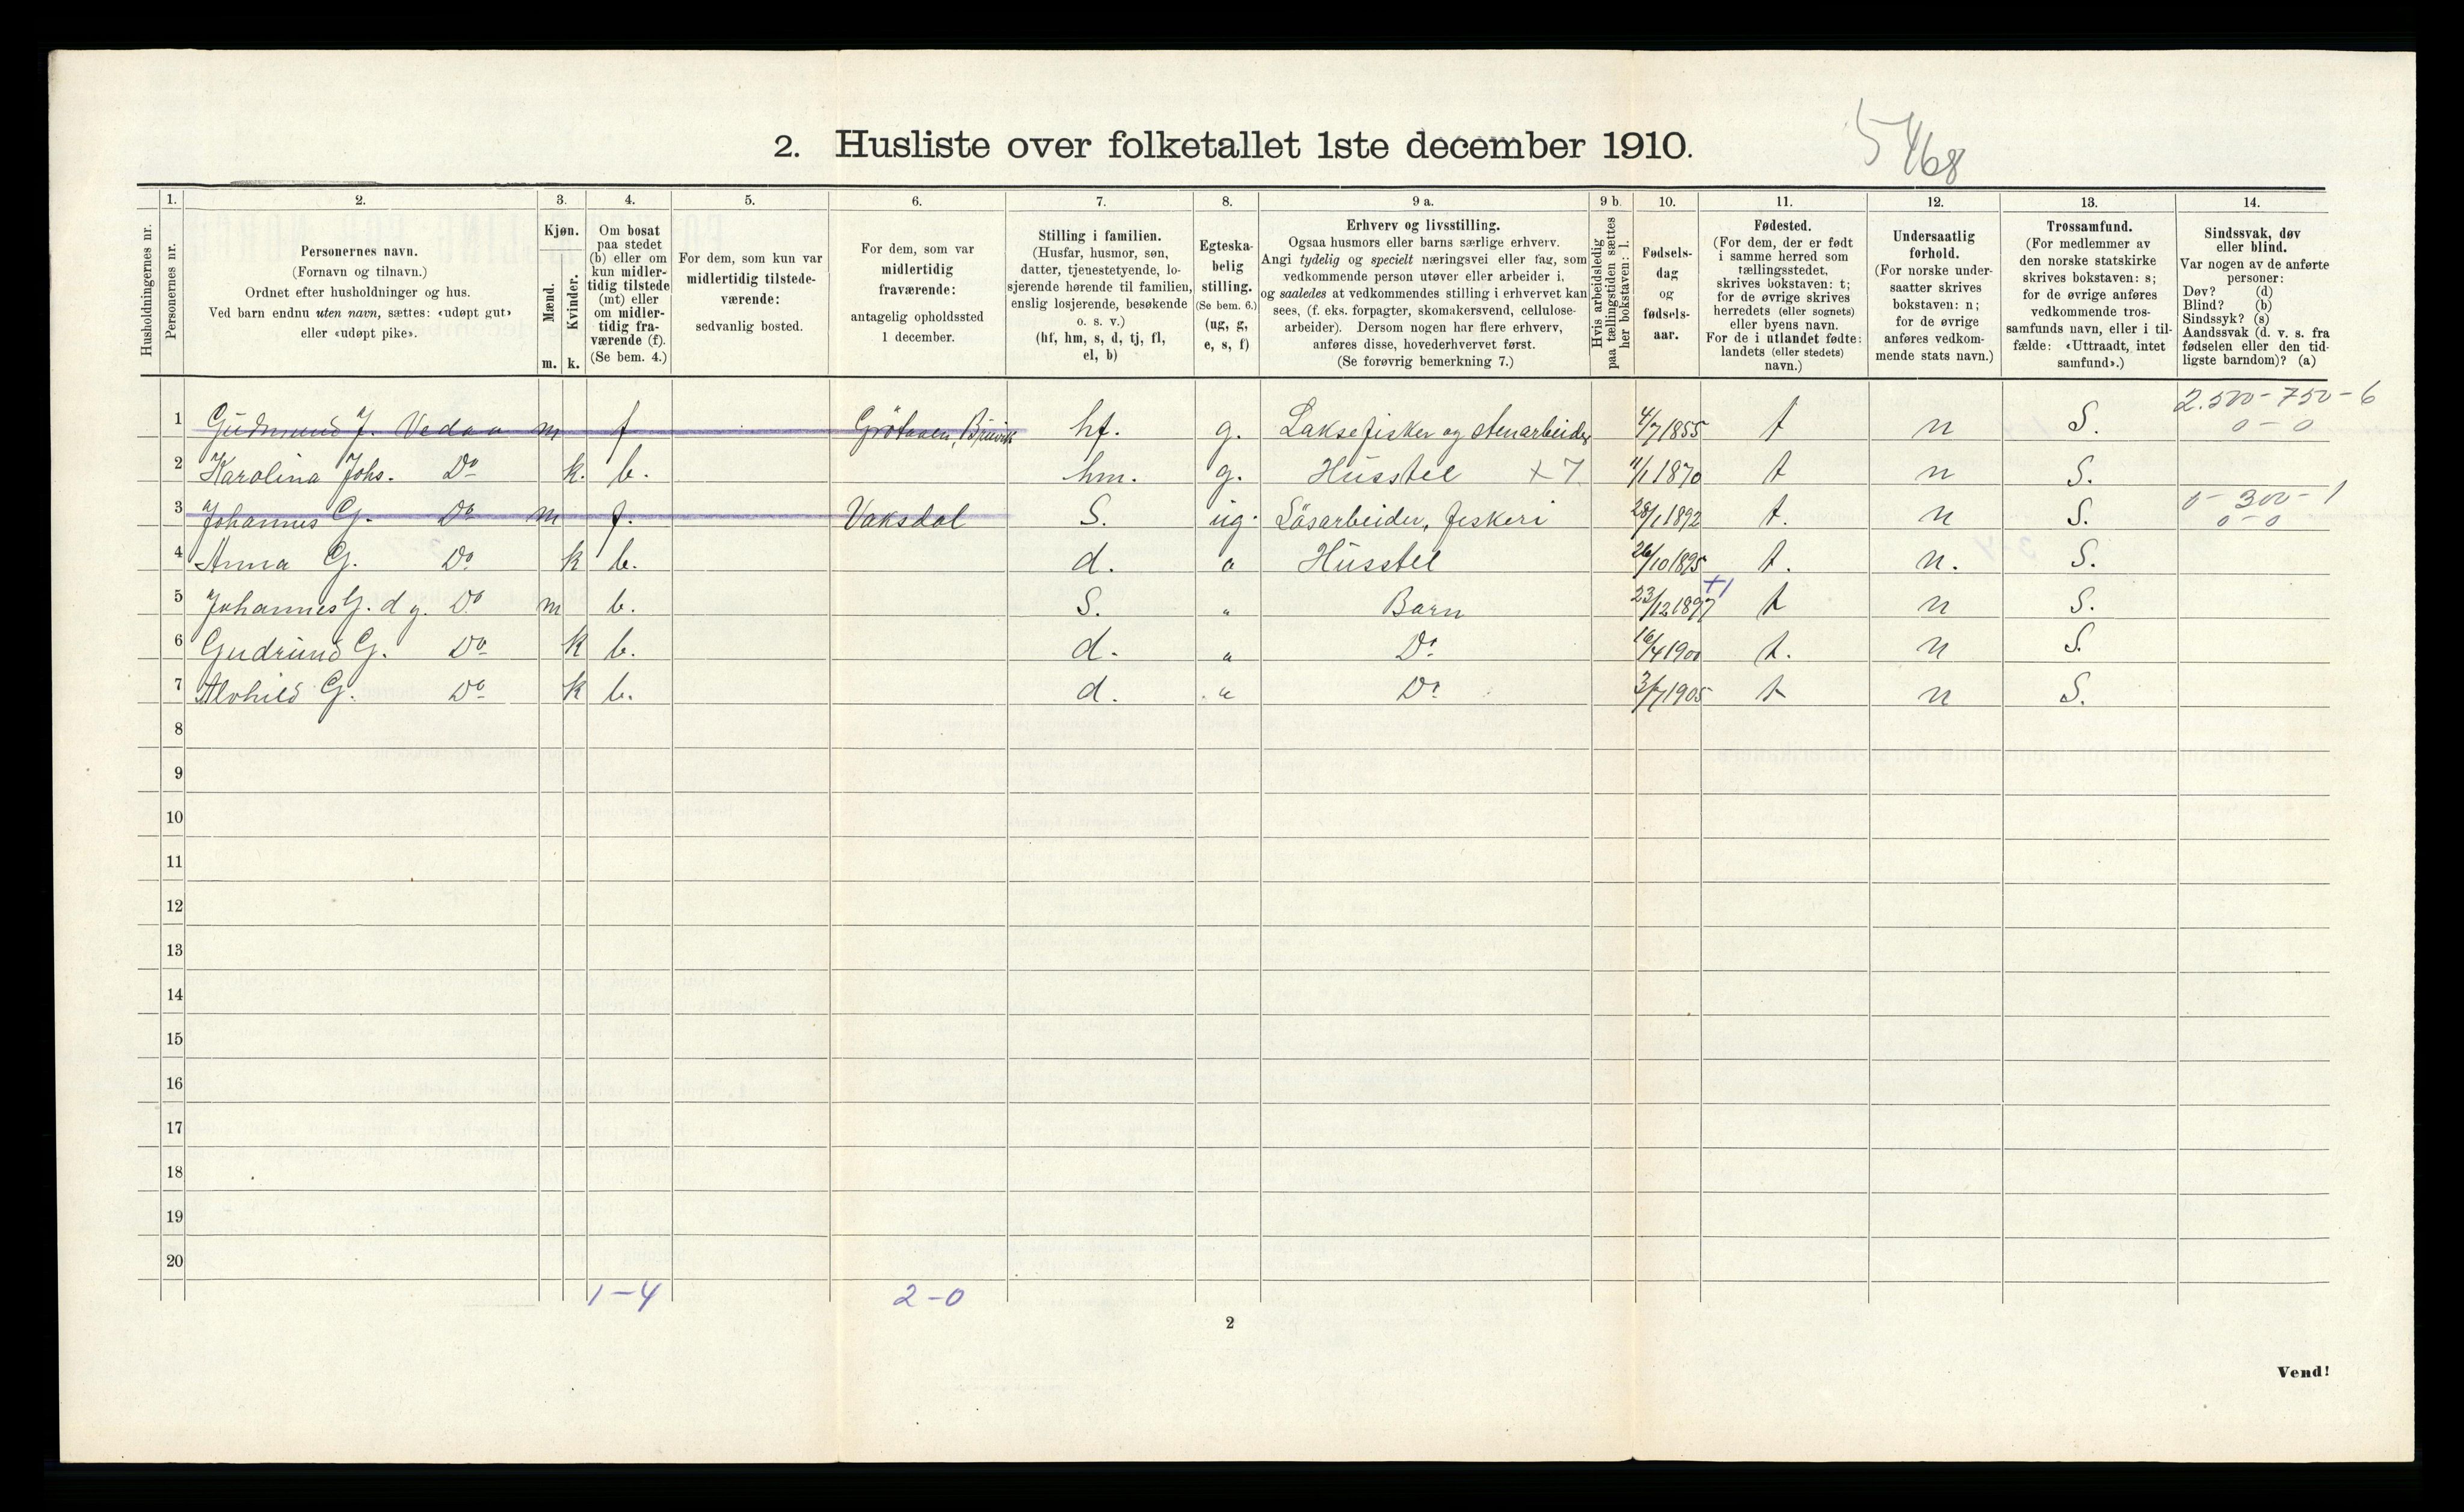 2. Husliste over folketallet 1ste december 1910.
5468
Husholdningernes nr.
1. Personernes nr.
2. Personernes navn. (Fornavn og tilnavn.) Ordnet efter husholdninger og hus. Ved barn endnu uten navn, sættes: «udøpt gut» eller «udøpt pike».
3. Kjøn. Mænd. m. Kvinder. k.
4. Om bosat paa stedet (b) eller om kun midlertidig tilstede (mt) eller om midlertidig fraværende (f). (Se bem. 4.)
5. For dem, som kun var midlertidig tilstedeværende: sedvanlig bosted.
6. For dem, som var midlertidig fraværende: antagelig opholdssted 1 december.
7. Stilling i familien. (Husfar, husmor, søn, datter, tjenestetyende, losjerende hørende til familien, enslig losjerende, besøkende o. s. v.) (hf, hm, s, d, tj, fl, el, b)
8. Egteskabelig stilling. (Se bem. 6.) (ug, g, e, s, f)
9 a. Erhverv og livsstilling. Ogsaa husmors eller barns særlige erhverv. Angi tydelig og specielt næringsvei eller fag, som vedkommende person utøver eller arbeider i, og saaledes at vedkommendes stilling i erhvervet kan sees, (f. eks. forpagter, skomakersvend, cellulosearbeider). Dersom nogen har flere erhverv, anføres disse, hovederhvervet først. (Se forøvrig bemerkning 7.)
9 b. Hvis arbeidsledig paa tællingstiden sættes her bokstaven: l.
10. Fødselsdag og fødselsaar.
11. Fødested. (For dem, der er født i samme herred som tællingsstedet, skrives bokstaven: t; for de øvrige skrives herredets (eller sognets) eller byens navn. For de i utlandet fødte: landets (eller stedets) navn.)
12. Undersaatlig forhold. (For norske undersaatter skrives bokstaven: n; for de øvrige anføres vedkommende stats navn.)
13. Trossamfund. (For medlemmer av den norske statskirke skrives bokstaven: s; for de øvrige anføres vedkommende trossamfunds navn, eller i tilfælde: «Uttraadt, intet samfund».)
14. Sindssvak, døv eller blind. Var nogen av de anførte personer: Døv? (d) Blind? (b) Sindssyk? (s) Aandssvak (d. v. s. fra fødselen eller den tidligste barndom)? (a)
2.500-750-6
1 Gudmund J. Vedaa m f hf. g. Laksefisker og stenarbeider 4/7 1855 t n S. 0-0
2 Karolina Johs. Do k. b. hm. g. Husstel +7 11/1 1870 t n S.
0-300-1
3 Johannes G. Do m f. Vaksdal S. ug. Løsarbeider, fiskeri 28/1 1892 t. n S. 0-0
4 Anna G. Do k b. d. " Husstel 26/10 1895 t. n. S.
+1
5 Johannes G. d y. Do m b. S. " Barn 23/12 1897 t n S.
6 Gudrund G. Do k b. d. " Do 16/4 1900 t. n S.
7 Alvhild G. Do k b. d. " Do 3/7 1905 t n S.
8
9
10
11
12
13
14
15
16
17
18
19
20
1-4 2-0
2
Vend!